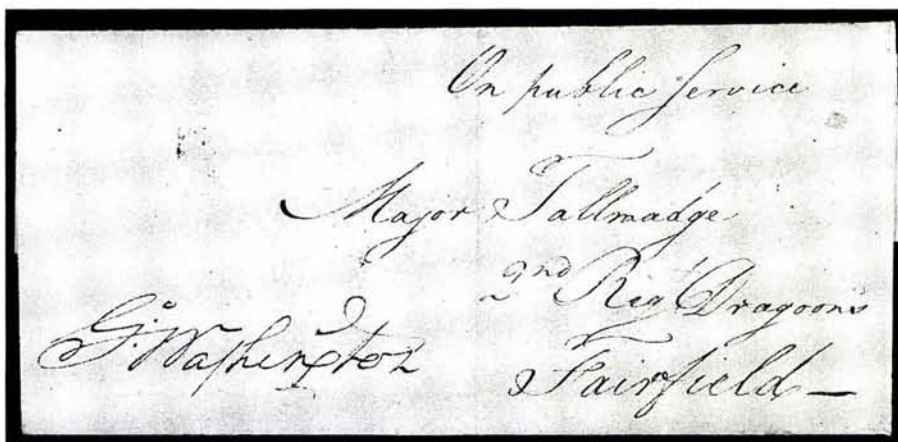 On public Service
Major Tallmadge
2nd Reg.t Dragoons
G:o Washington
Fairfield —